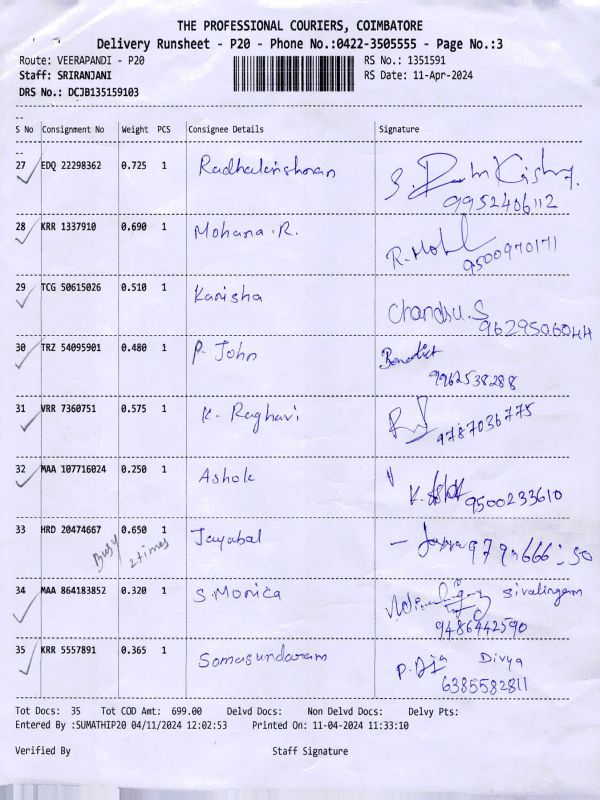 THE PROFESSIONAL COURIERS, COIMBATORE
Delivery Runsheet - P20 - Phone No.:0422-3505555 - Page No.:3
Route: VEERAPANDI - P20 RS No.: 1351591
Staff: SRIRANJANI RS Date: 11-Apr-2024
DRS No.: DCJB135159103
S No Consignment No Weight PCS Consignee Details Signature
27 EDQ 22298362 0.725 1 Radhakrishnan
9952406112
28 KRR 1337910 0.690 1 Mohana .R.
R. Mohl
9500970171
29 TCG 50615026 0.510 1 Kanisha
Chandru.S
9629506044
30 TRZ 54095901 0.480 1 P. John Benedict
9962538288
31 VRR 7360751 0.575 1 K. Raghavi
9787036775
32 MAA 107716024 0.250 1 Ashok
9500233610
33 HRD 20474667 0.650 1 Jayabal
Busy 2 times
34 MAA 864183852 0.320 1 S. Monica
Sivalingam
9486442590
35 KRR 5557891 0.365 1 Somasundaram
Divya
6385582811
Tot Docs: 35 Tot COD Amt: 699.00 Delvd Docs: Non Delvd Docs: Delvy Pts:
Entered By :SUMATHIP20 04/11/2024 12:02:53 Printed On: 11-04-2024 11:33:10
Verified By Staff Signature